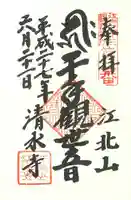 奉拝
江北山
千手観世音
清水寺
平成二十七年
六月二十二日